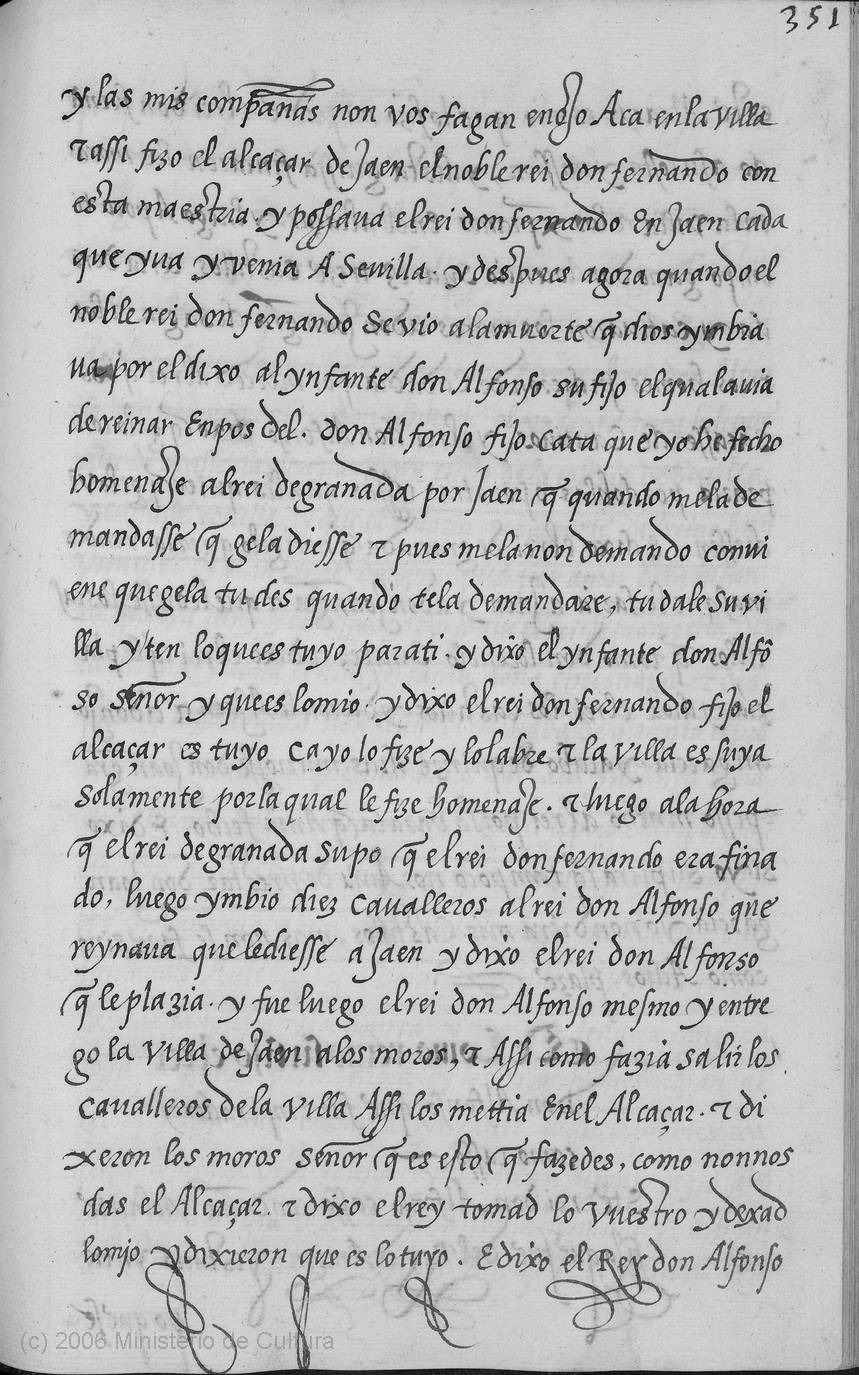 351
y las mis compañas non vos fagan enojo Aca en la villa
τ assi fizo el alcaçar de Jaen el noble rei don fernando con
esta maestria. y possava el rei don fernando En Jaen cada
que yva y venia A Sevilla. y despues agora quando el
noble rei don fernando se vio a la muerte q̄ dios ymbia
va por el dixo al ynfante don Alfonso su fijo el qual avia
de reinar En pos del. Don Alfonso fijo cata que yo he fecho
homenaje al rei de granada por Jaen q̄ quando me la de
mandasse q̄ ge la diesse τ pues me la non demando convi
ene que ge la tu des quando te la demandare, tu dale su vi
lla y ten lo que es tuyo para ti. y dixo el ynfante don Alfõ
so señor y que es lo mio. y dixo el rei don fernando fijo el
alcaçar es tuyo Ca yo lo fize y lo labre τ la villa es suya
solamente por la qual le fize homenaje. τ luego a la hora
q̄ el rei de granada supo q̄ el rei don fernando era fina
do, luego ymbio diez cavalleros al rei don Alfonso que
reynava que le diesse a Jaen y dixo el rei don Alfonso
q̄ le plazia. y fue luego el rei don Alfonso mesmo y entre
go la villa de Jaen a los moros, τ Assi como fazia salir los
cavalleros de la villa Assi los mettia En el Alcaçar. τ di
xeron los moros señor q̄ es esto q̄ fazedes, como non nos
das el Alcaçar. τ dixo el rey tomad lo vuestro y dexad
lo mjo y dixieron que es lo tuyo. E dixo el Rey don Alfonso
(c) 2006 Ministerio de Cultura